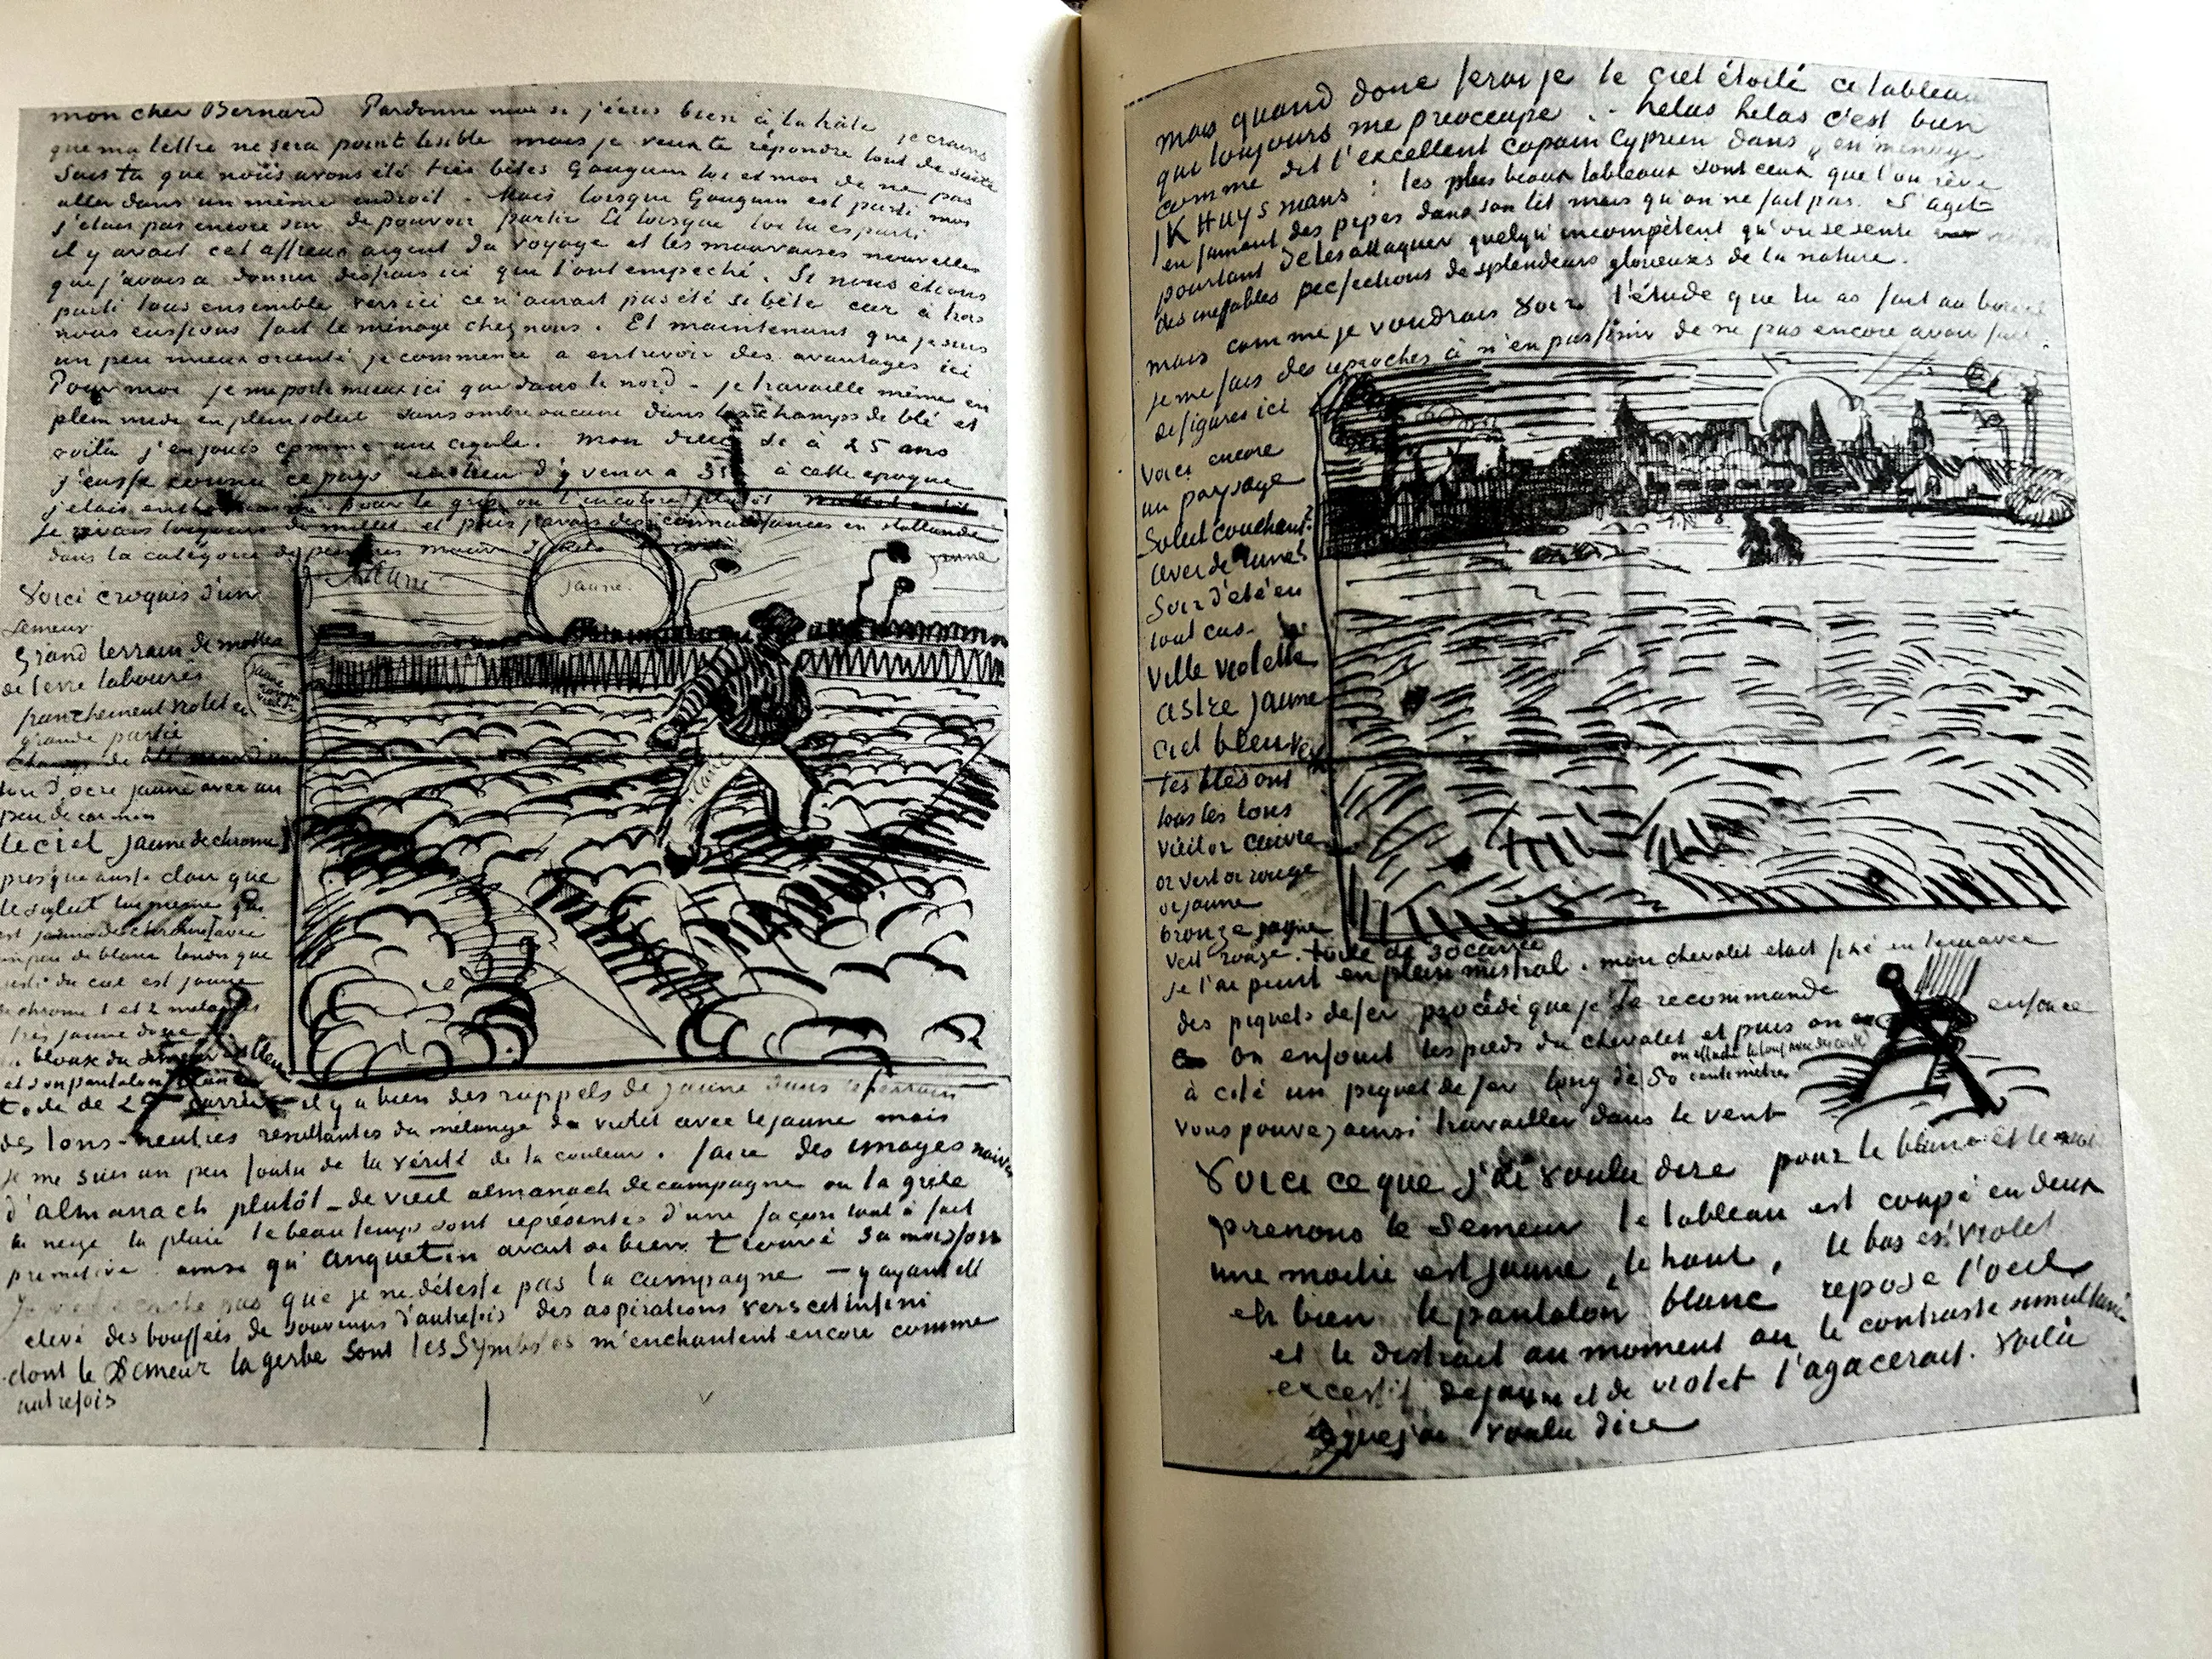 mon cher Bernard Pardonne moi si j'écris bien à la hâte je crains
que ma lettre ne sera point lisible mais je veux te répondre tout de suite
Sais tu que nous avons été très bêtes Gauguin toi et moi de ne pas
aller dans un même endroit. Mais lorsque Gauguin est parti moi
j'étais pas encore sûr de pouvoir partir Et lorsque toi tu es parti
il y avait cet affreux argent du voyage et les mauvaises nouvelles
que j'avais à donner des frais ici qui l'ont empeché. Si nous étions
parti tous ensemble vers ici ce n'aurait pas été si bête car à trois
nous eussions fait le ménage chez nous. Et maintenant que je suis
un peu mieux orienté je commence à entrevoir des avantages ici
Pour moi je me porte mieux ici que dans le nord - je travaille même en
plein midi en plein soleil sans ombre aucune dans les champs de blé et
voilà j'en jouis comme une cigale. mon dieu si à 25 ans
j'eusse connu ce pays au lieu d'y venir à 35 à cette epoque
j'etais enthousiasmé pour le gris ou l'incolore plutôt
Je rêvais toujours de millet et puis j'avais des connaissances en Hollande
dans la catégorie de peintres mauve Israels
Voici croquis d'un
Semeur.
Grand terrain de mottes
de terre labourés
franchement violet en
grande partie
Champ de blé mur d'un
ton d'ocre jaune avec un
peu de carmin
Le ciel jaune de chrome
presqu'aussi clair que
le soleil lui même qui
est jaune de chrome 1 avec
un peu de blanc tandis que
reste du ciel est jaune
de chrome 1 et 2 mélangés
très jaune donc
la blouse du semeur est bleue
et son pantalon blanc
toile de 25 carrée
jaune
jaune
jaune
blanc
il y a bien des rappels de jaune dans le terrain
des tons neutres resultantes du mélange du violet avec le jaune mais
Je me suis un peu foutu de la vérité de la couleur. faire des images naives
d'almanach plutôt - de vieil almanach de campagne ou la grêle
la neige la pluie le beau temps sont représentés d'une façon tout à fait
primitive. ainsi qu'Anquetin avait si bien trouvé sa moisson
Je ne te cache pas que je ne déteste pas la campagne - y ayant été
elevé des bouffées de souvenirs d'autrefois des aspirations vers cet infini
dont le Semeur la gerbe sont les Symboles m'enchantent encore comme
autrefois
mais quand donc ferai je le ciel étoilé ce tableau
qui toujours me preoccupe .. helas helas c'est bien
comme dit l'excellent copain Cyprien dans "en ménage"
JK Huysmans : les plus beaux tableaux sont ceux que l'on rêve
en fumant des pipes dans son lit mais qu'on ne fait pas. S'agit
pourtant de les attaquer quelqu'incompétent qu'on se sente
des ineffables perfections de splendeurs glorieuses de la nature.
mais comme je voudrais voir l'étude que tu as fait au bordel
je me fais des reproches à n'en pas finir de ne pas encore avoir fait
de figures ici
Voici encore
un paysage
Soleil couchant?
lever de lune?
Soir d'été en
tout cas.
Ville violette
astre jaune
ciel bleu vert
les blés ont
tous les tons
vieil or cuivre
or vert or rouge
or jaune
bronze jaune
vert rouge. toile de 30 carrée
je l'ai peint en plein mistral. mon chevalet etait fixé en terre avec
des piquets de fer procédé que je te recommande
on enfouit les pieds du chevalet et puis on enfonce
à côté un piquet de fer long de 50 centimètres
on attache le tout avec des cordes
vous pouvez ainsi travailler dans le vent
Voici ce que j'ai voulu dire pour le blanc et le noir
prenons le Semeur le tableau est coupé en deux
une moitié est jaune, le haut, le bas est violet
eh bien le pantalon blanc repose l'oeil
et le distrait au moment ou le contraste simultané
excessif de jaune et de violet l'agacerait. Voilà
ce que j'ai voulu dire